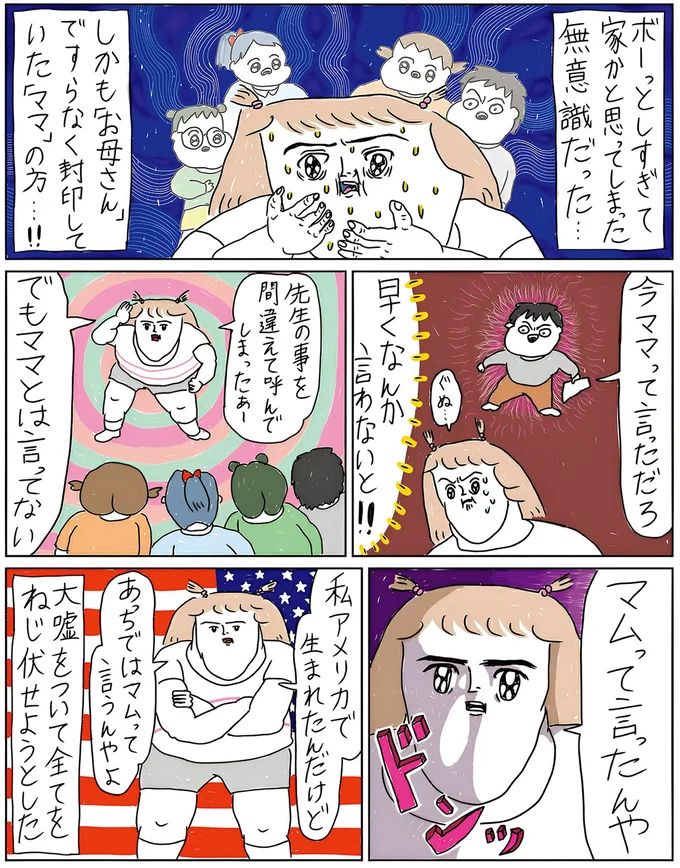 ボーっとしすぎて
家かと思ってしまった
無意識だった…
しかも「お母さん」
ですらなく封印して
いた「ママ」の方…!!
今ママって言っただろ
ぐぬ…
早くなんか
言わないと!!
先生の事を
間違えて呼んで
しまったぁー
でもママとは言ってない
マムって言ったんや
ドンッ
私アメリカで
生まれたんだけど
あっちではマムって
言うんやよ
大嘘をついて全てを
ねじ伏せようとした